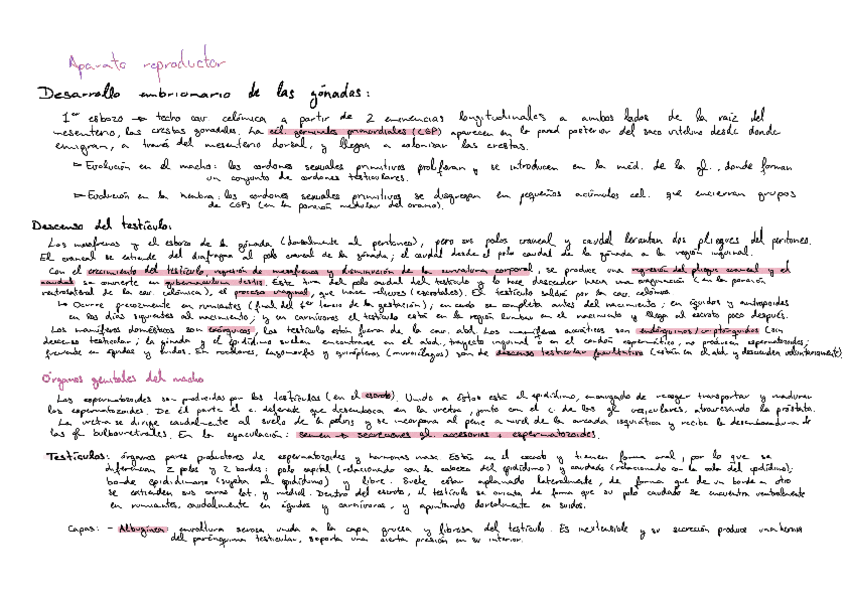 Aparato reproductor
Desarrollo embrionario de las gónadas:
1er esbozo → techo cav celómica a partir de 2 eminencias longitudinales a ambos lados de la raíz del
mesenterio, las crestas gonadales. La cél. germinales primordiales (CGP) aparecen en la pared posterior del saco vitelino desde donde
emigran, a través del mesenterio dorsal, y llegan a colonizar las crestas.
Evolución en el macho: los cordones sexuales primitivos proliferan y se introducen en la med. de la gl., donde forman
un conjunto de cordones testiculares.
Evolución en la hembra: los cordones sexuales primitivos se disgregan en pequeños acúmulos cel. que encierran grupos
de CGPs (en la porción medular del ovario).
Descenso del testículo:
Los mesofrenos y el esbozo de la gónada (dorsalmente al peritoneo), pero sus polos craneal y caudal levantan dos pliegues del peritoneo.
El craneal se extiende del diafragma al polo craneal de la gónada; el caudal desde el polo caudal de la gónada a la región inguinal.
Con el crecimiento del testículo, regresión de mesofrenos y disminución de la curvatura corporal, se produce una regresión del pliegue craneal y el
caudal se convierte en gubernaculum testis. Este tira del polo caudal del testículo y lo hace descender hacia una evaginación (en la porción
ventrolateral de la cav celómica), el proceso vaginal, que hace relieves (escrotales). El testículo saldrá por la cav. celómica
↳ Ocurre precozmente en rumiantes (final del 1er tercio de la gestación); en cerdo se completa antes del nacimiento; en équidos y antropoides
en los días siguientes al nacimiento; y en carnívoros el testículo está en la región lumbar en el nacimiento y llega al escroto poco después.
Los mamíferos domésticos son exórquicos, los testículos están fuera de la cav. abd. Los mamíferos acuáticos son endórquinos/criptórquidos (sin
descenso testicular; la gónada y el epidídimo suelen encontrarse en el abd., trayecto inguinal o en el cordón espermático, no producen espermatozoides;
frecuente en équidos y suidos. En roedores, lagomorfos y quirópteros (murciélagos) son de descenso testicular facultativo (están en el abd y descienden voluntariamente)
Órganos genitales del macho
Los espermatozoides son producidos por los testículos (en el escroto). Unido a éstos está el epidídimo, encargado de recoger transportar y madurar
los espermatozoides. De él parte el c. deferente que desemboca en la uretra, junto con el c. de las gl vesiculares, atravesando la próstata.
La uretra se dirige caudalmente al suelo de la pelvis y se incorpora al pene a nivel de la arcada isquiática y recibe la desembocadura de
las gl bulbouretrales. En la eyaculación: semen → secreciones gl. accesorias + espermatozoides.
Testículos: órganos pares productores de espermatozoides y hormonas masc. Están en el escroto y tienen forma oval, por lo que se
diferencian 2 polos y 2 bordes: polo capital (relacionado con la cabeza del epidídimo) y caudado (relacionado con la cola del epidídimo);
borde epididimario (sujeta al epidídimo) y libre. Suele estar aplanado lateralmente, de forma que de un borde a otro
se extienden sus caras lat. y medial. Dentro del escroto, el testículo se orienta de forma que su polo caudado se encuentra ventralmente
en rumiantes, caudalmente en équidos y carnívoros, y apuntando dorsalmente en suidos.
Capas: - Albugínea: envoltura serosa unida a la capa gruesa y fibrosa del testículo. Es inextensible y su sección produce una hernia
del parénquima testicular, soporta una cierta presión en su interior.